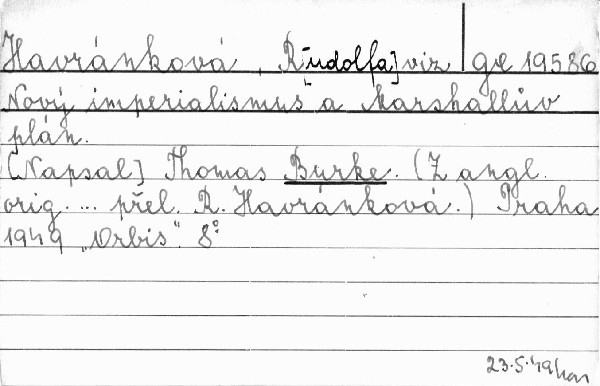 Havránková, R[udolfa] viz ge 19586
Nový imperialismus a Marshallův
plán.
[Napsal] Thomas Burke. (Z angl.
orig. ... přel. R. Havránková.) Praha
1949 "Orbis". 8°
23.5.49